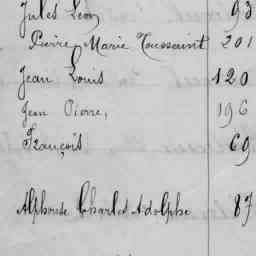 Jules Léon 93
Pierre Marie Toussaint 201
Jean Louis 120
Jean Pierre, 196
François 69
Alphonse Charles Adolphe 87